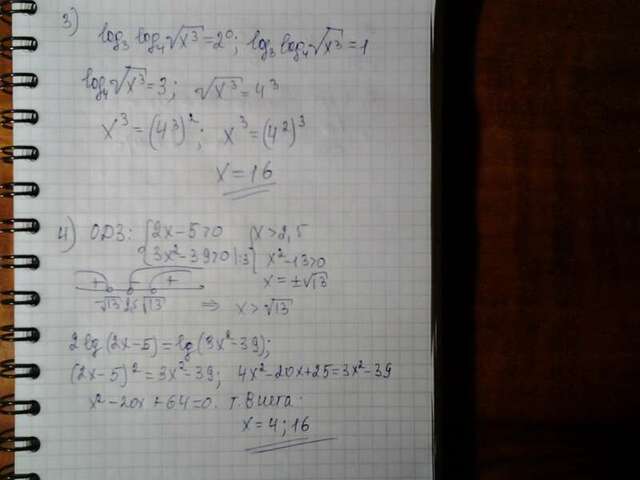 3) log₃ log₄ √x³ = 2⁰; log₃ log₄ √x³ = 1
log₄ √x³ = 3; √x³ = 4³
x³ = (4³)²; x³ = (4²)³
x = 16
4) ОДЗ: {2x-5>0 {x>2,5
{3x²-39>0 |:3 {x²-13>0
x = ±√13
+ - +
-√13 2,5 √13 ⇒ x>√13
2lg(2x-5) = lg(3x²-39);
(2x-5)² = 3x²-39; 4x²-20x+25=3x²-39
x²-20x+64=0. т. Виета.
x=4; 16